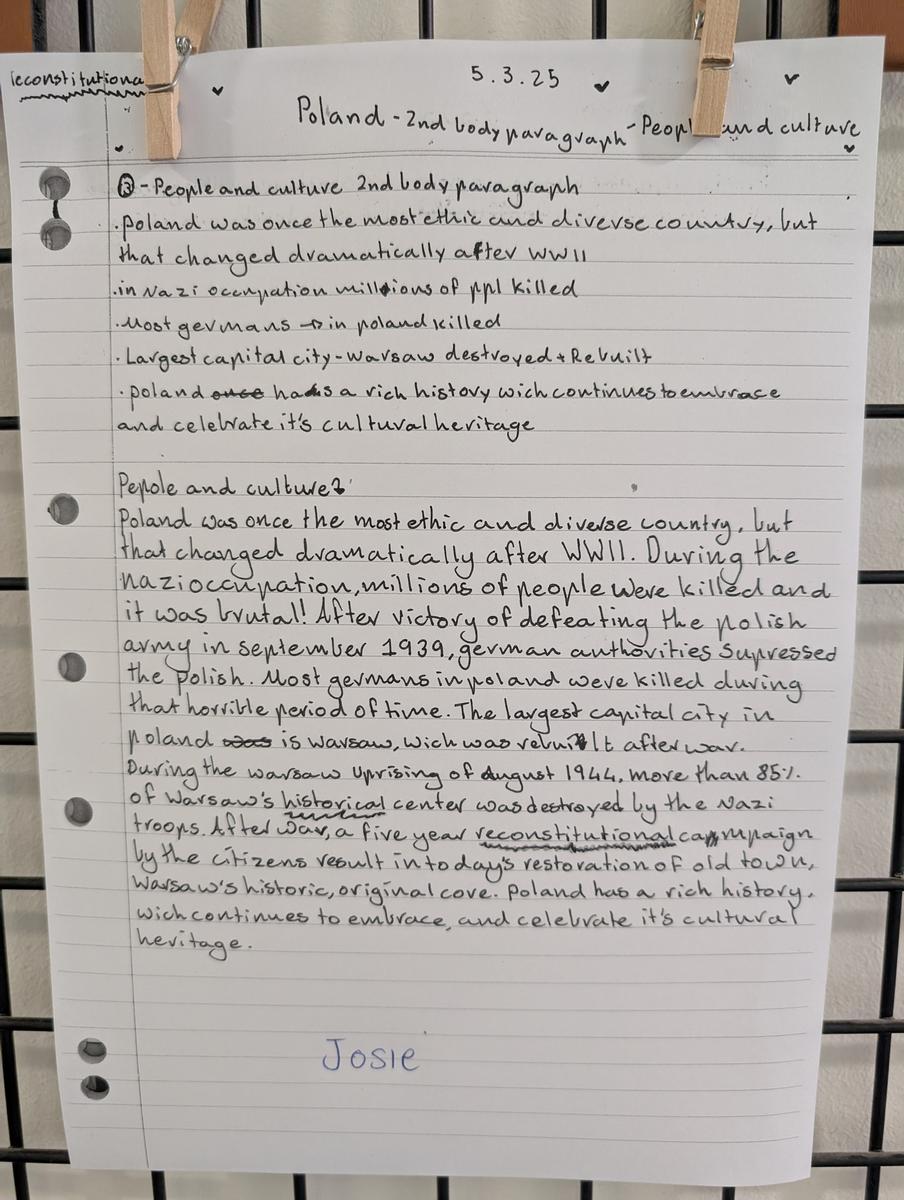 reconstitutiona
5.3.25
Poland - 2nd body paragraph - People and culture
- People and culture 2nd body paragraph
. Poland was once the most ethic and diverse country, but
that changed dramatically after WWII
. in Nazi occupation millions of ppl killed
. Most germans → in poland killed
. Largest capital city - Warsaw destroyed + Rebuilt
. poland once has a rich history wich continues to embrace
and celebrate it's cultural heritage
Pepole and culture?
Poland was once the most ethic and diverse country, but
that changed dramatically after WWII. During the
nazi occupation, millions of people were killed and
it was brutal! After victory of defeating the polish
army in september 1939, german authorities supressed
the polish. Most germans in poland were killed during
that horrible period of time. The largest capital city in
poland was is Warsaw, wich was rebuilt after war.
During the warsaw Uprising of August 1944, more than 85%
of Warsaw's historical center was destroyed by the Nazi
troops. After war, a five year reconstitutional campaign
by the citizens result in today's restoration of old town,
Warsaw's historic, original core. Poland has a rich history,
wich continues to embrace, and celebrate it's cultural
heritage.
Josie